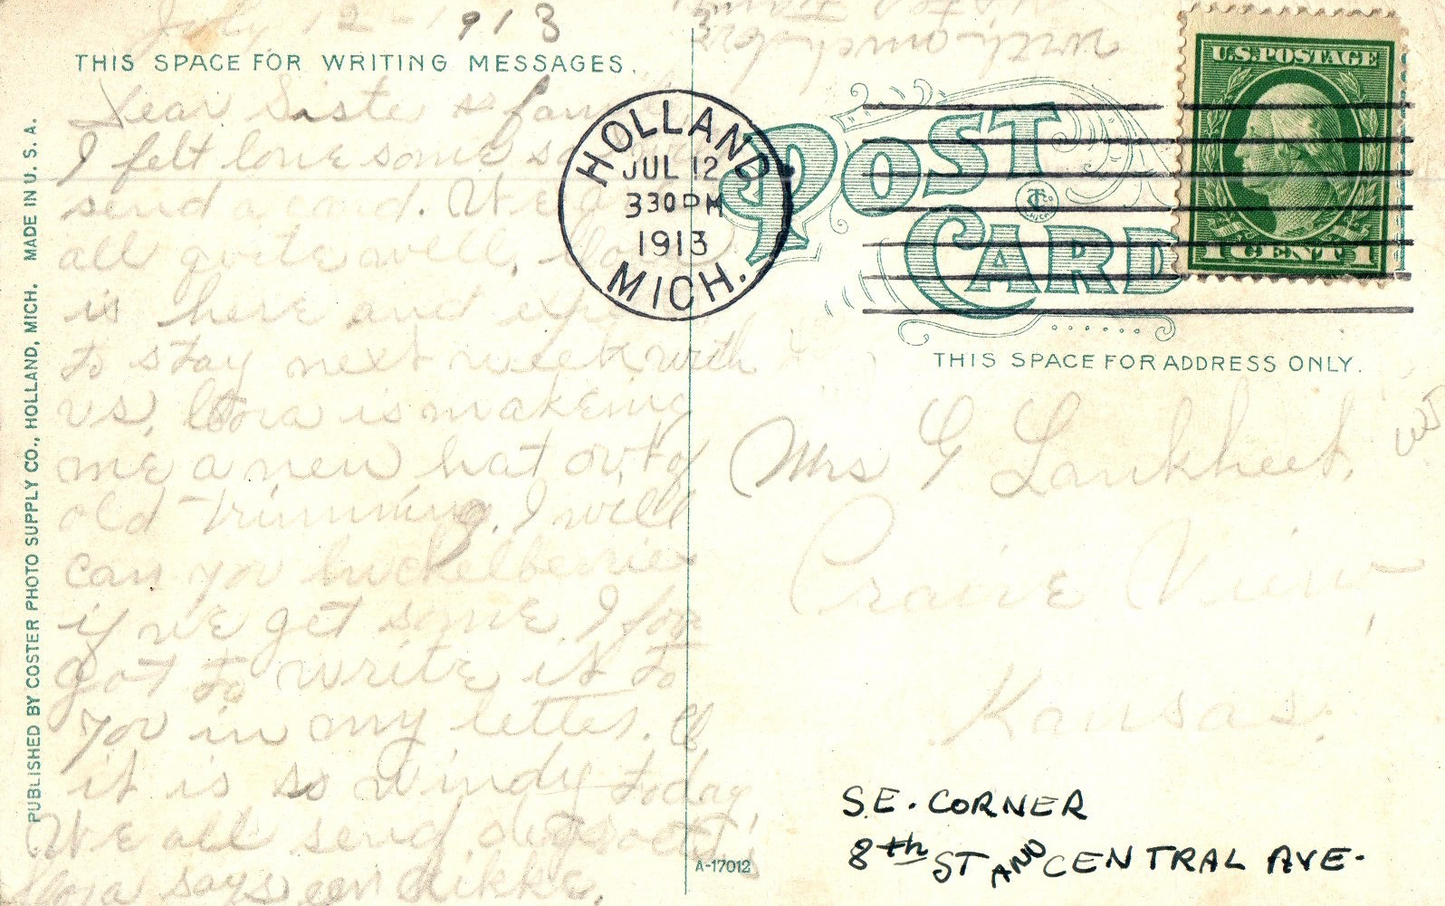 July 12 - 1913
THIS SPACE FOR WRITING MESSAGES.
Dear Siste & fam
I felt like some
send a card. We a
all quite well.
is here and expe
to stay next week with
us. Cora is making
me a new hat out of
old trimming. I will
can you huckelberries
if we get some I for
got to write is to
you in my letter. O,
it is so windy today
We all send
says een dikke.
with
PUBLISHED BY COSTER PHOTO SUPPLY CO., HOLLAND, MICH. MADE IN U. S. A.
HOLLAND
JUL 12
330 PM
1913
MICH.
POST
CARD
U.S. POSTAGE
1 CENT 1
THIS SPACE FOR ADDRESS ONLY.
Mrs G Lankheet,
Prairie View,
Kansas.
S.E. CORNER
8th ST AND CENTRAL AVE.
A-17012